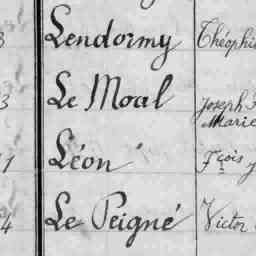 3 Lendormy Théophi
3 Le Moal Joseph
Marie
1 Léon Fçois
4 Le Peigné Victor